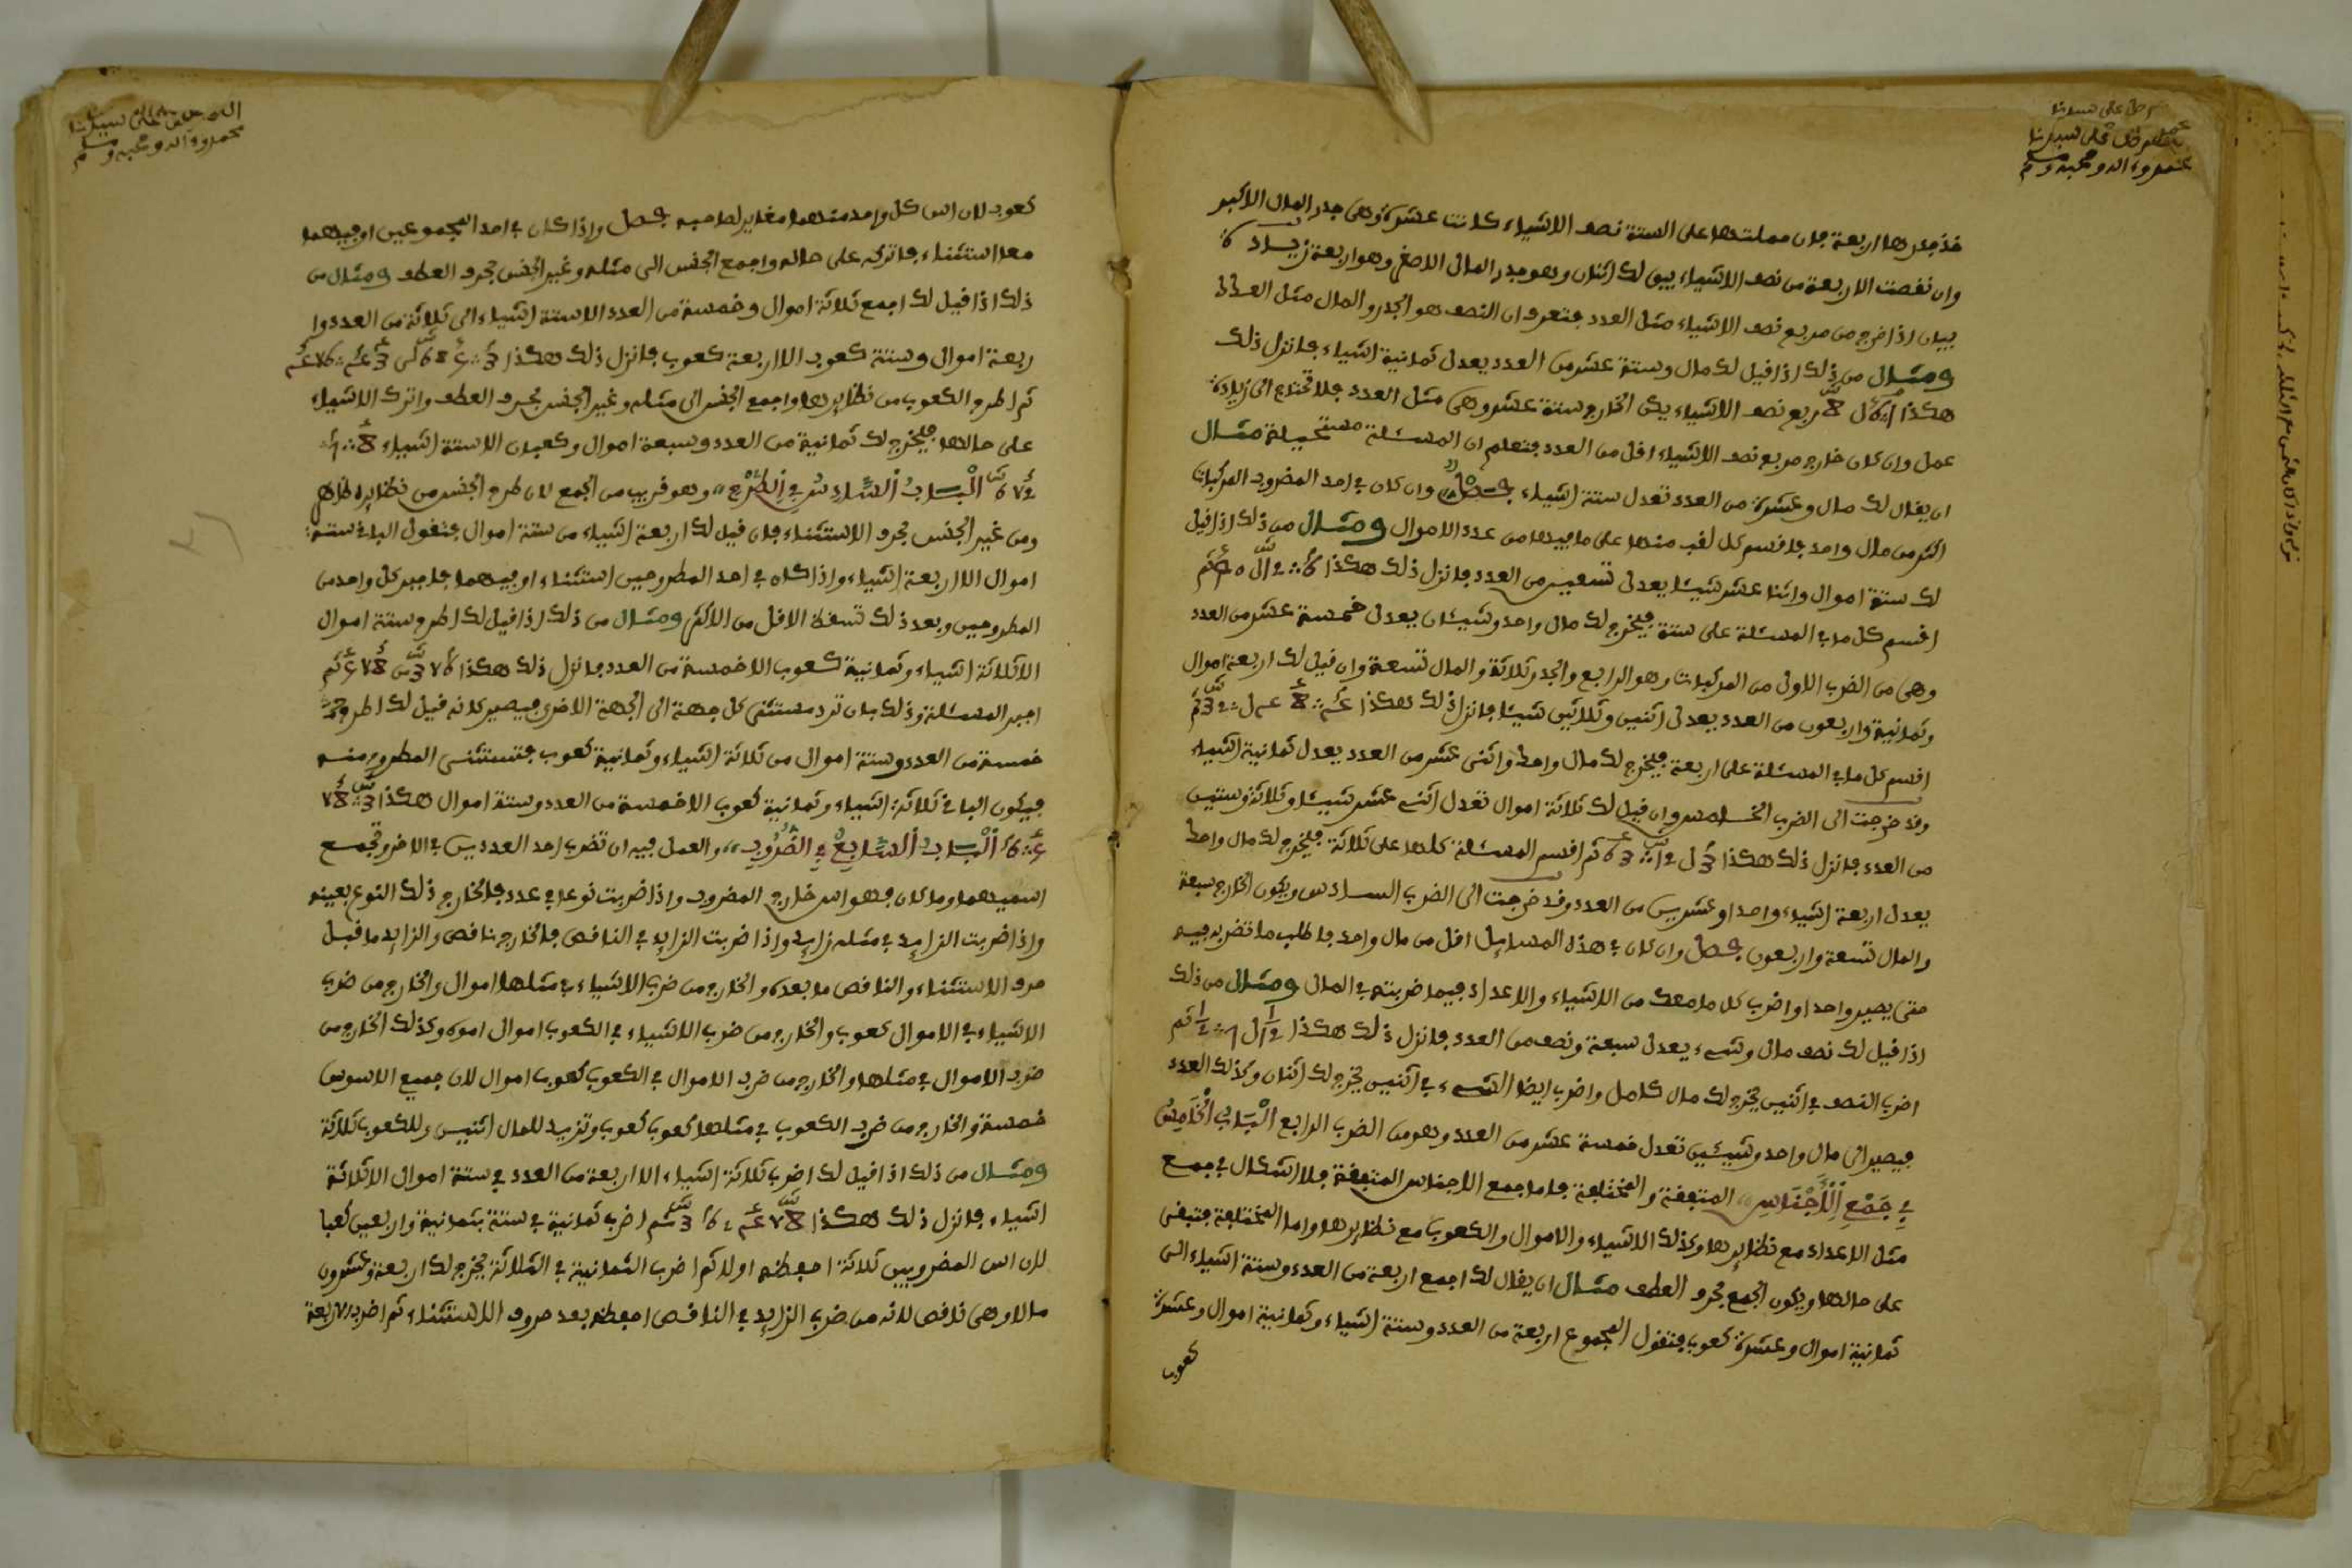 خذ جذرها اربعة فان حملتها على الستة نصف الاشياء كانت عشرة وهى جذر المال الاكبر
وان نفصت الاربعة من نصف الاشياء يبق لك اثنان وهو جذر المال الاصغر وهو اربعة زيادة
بيان اذا خرج من مربع نصف الاشياء مثل العدد فتعرف ان النصف هو الجذر والمال مثل العدد
ومثال من ذلك اذا فيل لك مال وستة عشر من العدد يعدل ثمانية اشياء فانزل ذلك
هكذا ربع نصف الاشياء يكن الخارج ستة عشر وهى مثل العدد فلا تحتاج الى زيادة
عمل وان كان خارج مربع نصف الاشياء افل من العدد فتعلم ان المسئلة مستحيلة مثال
ان يفال لك مال وعشرة من العدد تعدل ستة اشياء فصل وان كان في احد المضروب المركبات
اكثر من مال واحد فافسم كل لفب منها على ما فيها من عدد الاموال ومثال من ذلك اذا فيل
لك ستة اموال واثنا عشر شيئا يعدل تسعين من العدد فانزل ذلك هكذا
افسم كل ما في المسئلة على ستة فيخرج لك مال واحد وشيئان يعدل خمسة عشر من العدد
وهى من الضرب الاول من المركبات وهو الرابع والجذر ثلاثة والمال تسعة وان فيل لك اربعة اموال
وثمانية واربعون من العدد يعدل اثنين وثلاثين شيئا فانزل ذلك هكذا
افسم كل ما في المسئلة على اربعة فيخرج لك مال واحد واثنى عشر من العدد يعدل ثمانية اشياء
وفد خرجت الى الضرب الخامس وان فيل لك ثلاثة اموال تعدل اثنى عشر شيئا وثلاثة وستين
من العدد فانزل ذلك هكذا ثم افسم المسئلة كلها على ثلاثة فيخرج لك مال واحد
يعدل اربعة اشياء واحدا وعشرين من العدد وفد خرجت الى الضرب السادس ويكون الخارج سبعة
والمال تسعة واربعون فصل وان كان في هذه المسايل افل من مال واحد فاطلب ما تضربه فيه
حتى يصير واحدا واضرب كل ما معك من الاشياء والاعداد فيما ضربته في المال ومثال من ذلك
اذا فيل لك نصف مال وشىء يعدل سبعة ونصف من العدد فانزل ذلك هكذا
اضرب النصف في اثنين يخرج لك مال كامل واضرب ايضا الشىء في اثنين يخرج لك اثنان وكذلك العدد
فيصير الى مال واحد وشيئين تعدل خمسة عشر من العدد وهو من الضرب الرابع الْبَابُ الْخَامِسُ
فِي جَمْعِ الْأَجْنَاسِ المتفقة والمختلفة فاما جمع الاجناس المتفقة فلا اشكال في جمع
مثل الاعداد مع نظايرها وكذلك الاشياء والاموال والكعوب مع نظايرها واما المختلفة فتبفى
على حالها ويكون الجمع بحرف العطف مثال ان يفال لك اجمع اربعة من العدد وستة اشياء الى
ثمانية اموال وعشرة كعوب فتفول المجموع اربعة من العدد وستة اشياء وثمانية اموال وعشرة
كعوب
كعوب لان اس كل واحد منهما مغاير لصاحبه فصل واذا كان في احد المجموعين او فيهما
معا استثناء فاتركه على حاله واجمع الجنس الى مثله وغير الجنس بحرف العطف ومثال من
ذلك اذا فيل لك اجمع ثلاثة اموال وخمسة من العدد الا ستة اشياء الى ثلاثة من العدد وا
ربعة اموال وستة كعوب الا اربعة كعوب فانزل ذلك هكذا
ثم اطرح الكعوب من نظايرها واجمع الجنس الى مثله وغير الجنس بحرف العطف واترك الاشياء
على حالها فيخرج لك ثمانية من العدد وسبعة اموال وكعبان الا ستة اشياء
الْبَابُ السَّادِسُ فِي الطَّرْحِ وهو فريب من الجمع لان طرح الجنس من نظايره ظاهر
ومن غير الجنس بحرف الاستثناء فان فيل لك اربعة اشياء من ستة اموال فتفول الباقى ستة
اموال الا اربعة اشياء واذا كان في احد المطروحين استثناء او فيهما فاجبر كل واحد من
المطروحين وبعد ذلك تسفط الافل من الاكثر ومثال من ذلك اذا فيل لك اطرح ستة اموال
الا ثلاثة اشياء وثمانية كعوب الا خمسة من العدد فانزل ذلك هكذا
اجبر المسئلة وذلك بان ترد مستثنى كل جهة الى الجهة الاخرى فيصير كانه فيل لك اطرح
خمسة من العدد وستة اموال من ثلاثة اشياء وثمانية كعوب فتستثنى المطروح منه
فيكون الباقى ثلاثة اشياء وثمانية كعوب الا خمسة من العدد وستة اموال هكذا
الْبَابُ السَّابِعُ فِي الضُّرُوبِ والعمل فيه ان تضرب احد العددين في الاخر وتجمع
اسيهما وما كان فهو اس خارج المضروب واذا ضربت نوعا في عدد فالخارج ذلك النوع بعينه
واذا ضربت الزايد في مثله زايد واذا ضربت الزايد في النافص فالخارج نافص والزايد ما فبل
حرف الاستثناء والنافص ما بعده والخارج من ضرب الاشياء في مثلها اموال والخارج من ضرب
الاشياء في الاموال كعوب والخارج من ضرب الاشياء في الكعوب اموال اموال وكذلك الخارج من
ضرب الاموال في مثلها والخارج من ضرب الاموال في الكعوب كعوب اموال لان جميع الاسوس
خمسة والخارج من ضرب الكعوب في مثلها كعوب كعوب وتزيد للمال اثنين وللكعوب ثلاثة
ومثال من ذلك اذا فيل لك اضرب ثلاثة اشياء الا اربعة من العدد في ستة اموال الا ثلاثة
اشياء فانزل ذلك هكذا اضرب ثمانية في ستة بثمانية واربعين كعبا
لان اس المضروبين ثلاثة احفظه اولا ثم اضرب الثمانية في الثلاثة يخرج لك اربعة وعشرون
مالا وهى نافص لانه من ضرب الزايد في النافص احفظه بعد حروف الاستثناء ثم اضرب الاربعة